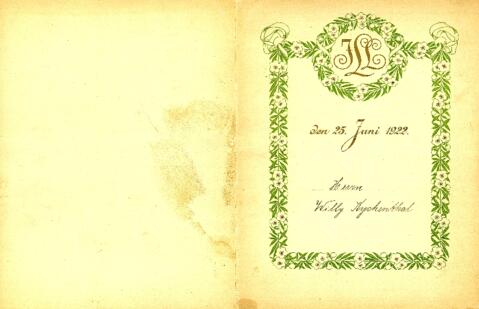 JLL
Den 25. Juni 1922.
Herrn
Willy Ryckenthal